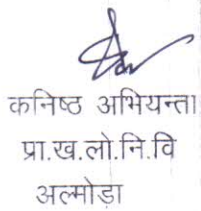 कनिष्ठ अभियन्ता
प्रा.ख.लो.नि.वि
अल्मोड़ा